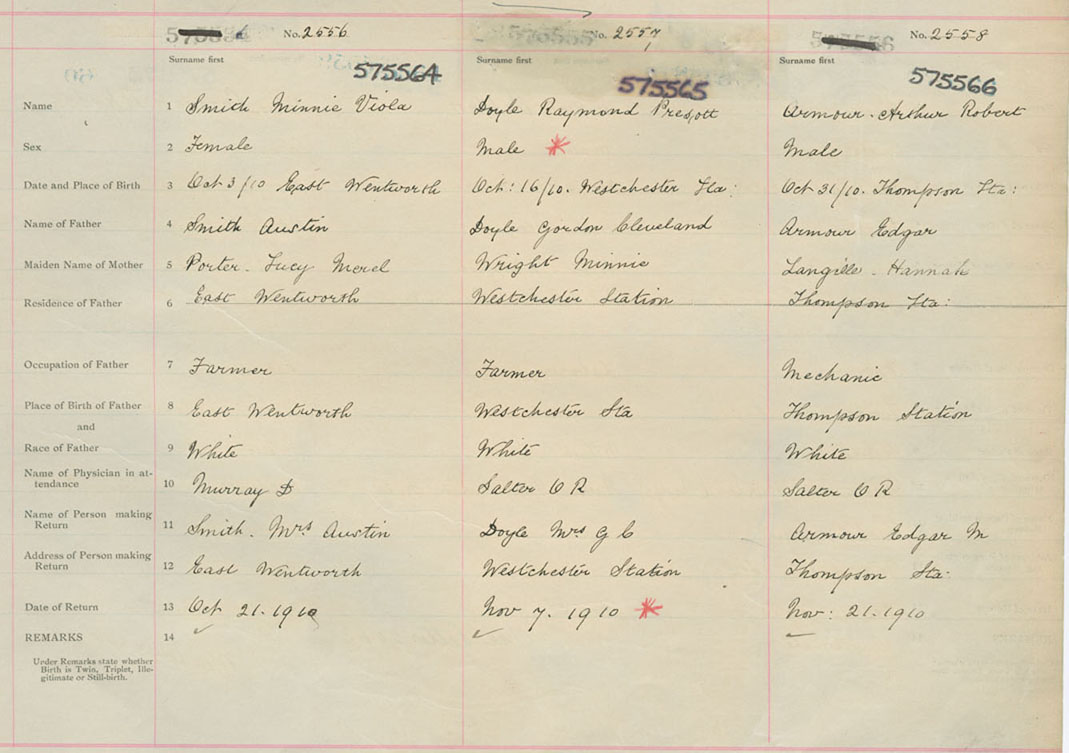 No. 2556 No. 2557 No. 2558
Surname first Surname first Surname first
575564 575565 575566
Name 1 Smith Minnie Viola Doyle Raymond Prescott Armour. Arthur Robert
Sex 2 Female Male * Male
Date and Place of Birth 3 Oct 3/10 East Wentworth Oct: 16/10. Westchester Sta: Oct 31/10. Thompson Sta:
Name of Father 4 Smith Austin Doyle Gordon Cleveland Armour Edgar
Maiden Name of Mother 5 Porter. Lucy Wright Minnie Langille. Hannah
Residence of Father 6 East Wentworth Westchester Station Thompson Sta:
Occupation of Father 7 Farmer Farmer Mechanic
Place of Birth of Father 8 East Wentworth Westchester Sta Thompson Station
and
Race of Father 9 White White White
Name of Physician in at-
tendance 10 Murray D Salter O R Salter O R
Name of Person making
Return 11 Smith. Mrs Austin Doyle Mrs G C Armour Edgar M
Address of Person making
Return 12 East Wentworth Westchester Station Thompson Sta:
Date of Return 13 Oct 21. 1910 Nov 7. 1910 * Nov: 21. 1910
REMARKS 14
Under Remarks state whether
Birth is Twin, Triplet, Ille-
gitimate or Still-birth.